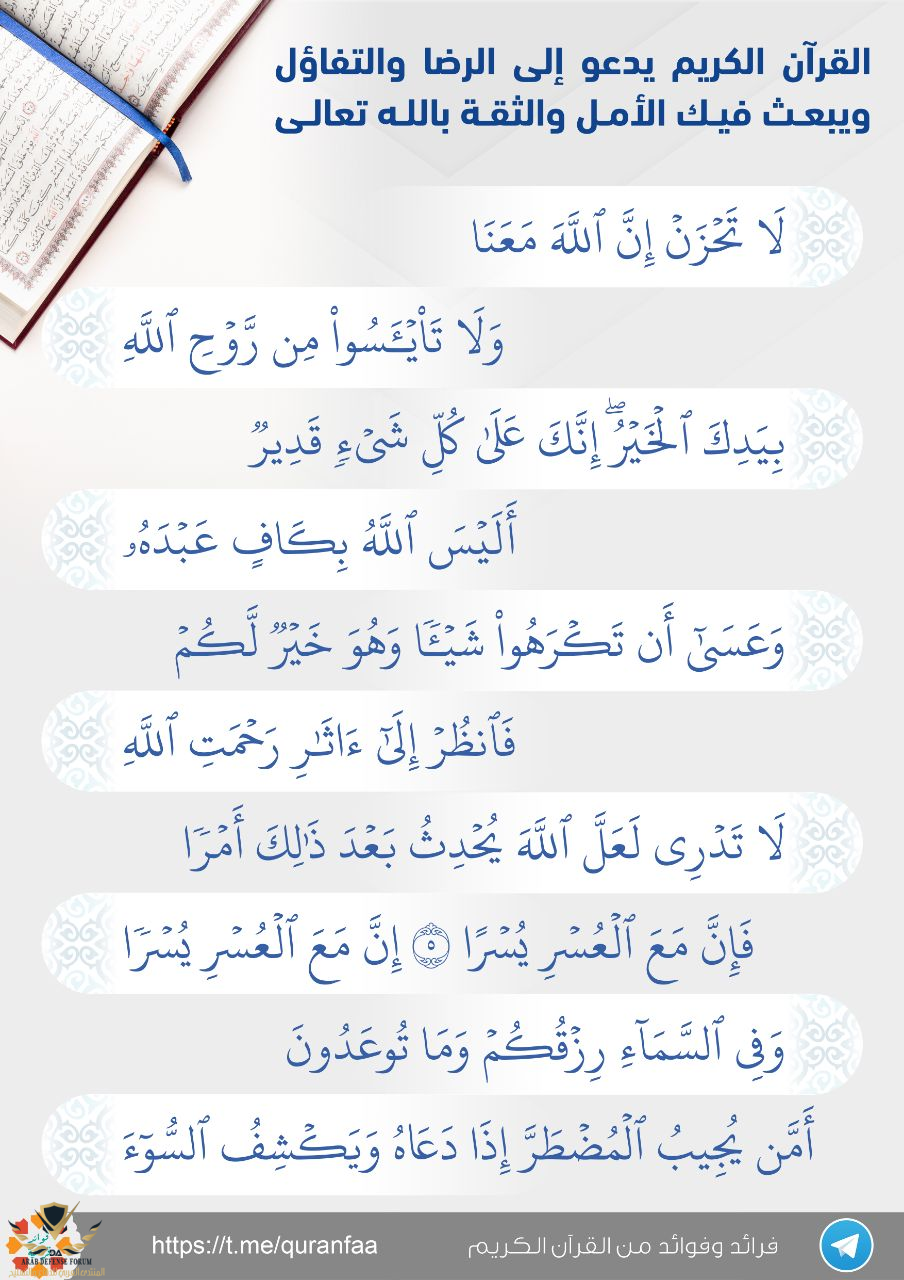 القرآن الكريم يدعو إلى الرضا والتفاؤل
ويبعث فيك الأمل والثقة بالله تعالى
لَا تَحۡزَنۡ إِنَّ ٱللَّهَ مَعَنَا
وَلَا تَاْيۡـَٔسُواْ مِن رَّوۡحِ ٱللَّهِ
بِيَدِكَ ٱلۡخَيۡرُۖ إِنَّكَ عَلَىٰ كُلِّ شَيۡءٖ قَدِيرٞ
أَلَيۡسَ ٱللَّهُ بِكَافٍ عَبۡدَهُۥ
وَعَسَىٰٓ أَن تَكۡرَهُواْ شَيۡـٔٗا وَهُوَ خَيۡرٞ لَّكُمۡ
فَٱنظُرۡ إِلَىٰٓ ءَاثَٰرِ رَحۡمَتِ ٱللَّهِ
لَا تَدۡرِي لَعَلَّ ٱللَّهَ يُحۡدِثُ بَعۡدَ ذَٰلِكَ أَمۡرٗا
فَإِنَّ مَعَ ٱلۡعُسۡرِ يُسۡرًا ٥ إِنَّ مَعَ ٱلۡعُسۡرِ يُسۡرٗا
وَفِي ٱلسَّمَآءِ رِزۡقُكُمۡ وَمَا تُوعَدُونَ
أَمَّن يُجِيبُ ٱلۡمُضۡطَرَّ إِذَا دَعَاهُ وَيَكۡشِفُ ٱلسُّوٓءَ
فرائد وفوائد من القرآن الكريم
https://t.me/quranfaa
ARAB DEFENSE FORUM